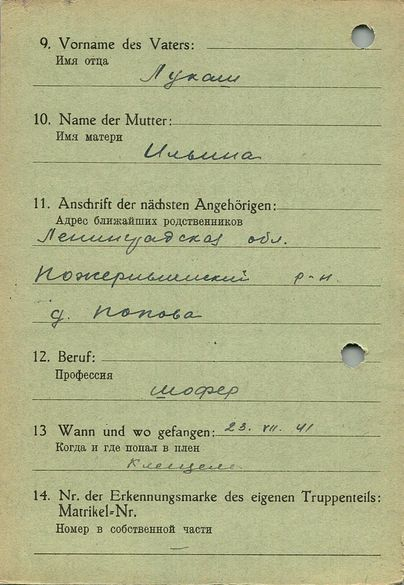 9. Vorname des Vaters:
Имя отца
Лукаш
10. Name der Mutter:
Имя матери
Ильина
11. Anschrift der nächsten Angehörigen:
Адрес ближайших родственников
Ленинградская обл.
р-н.
д. Попова
12. Beruf:
Профессия
шофер
13 Wann und wo gefangen: 23. VII. 41
Когда и где попал в плен
14. Nr. der Erkennungsmarke des eigenen Truppenteils:
Matrikel-Nr.
Номер в собственной части
—